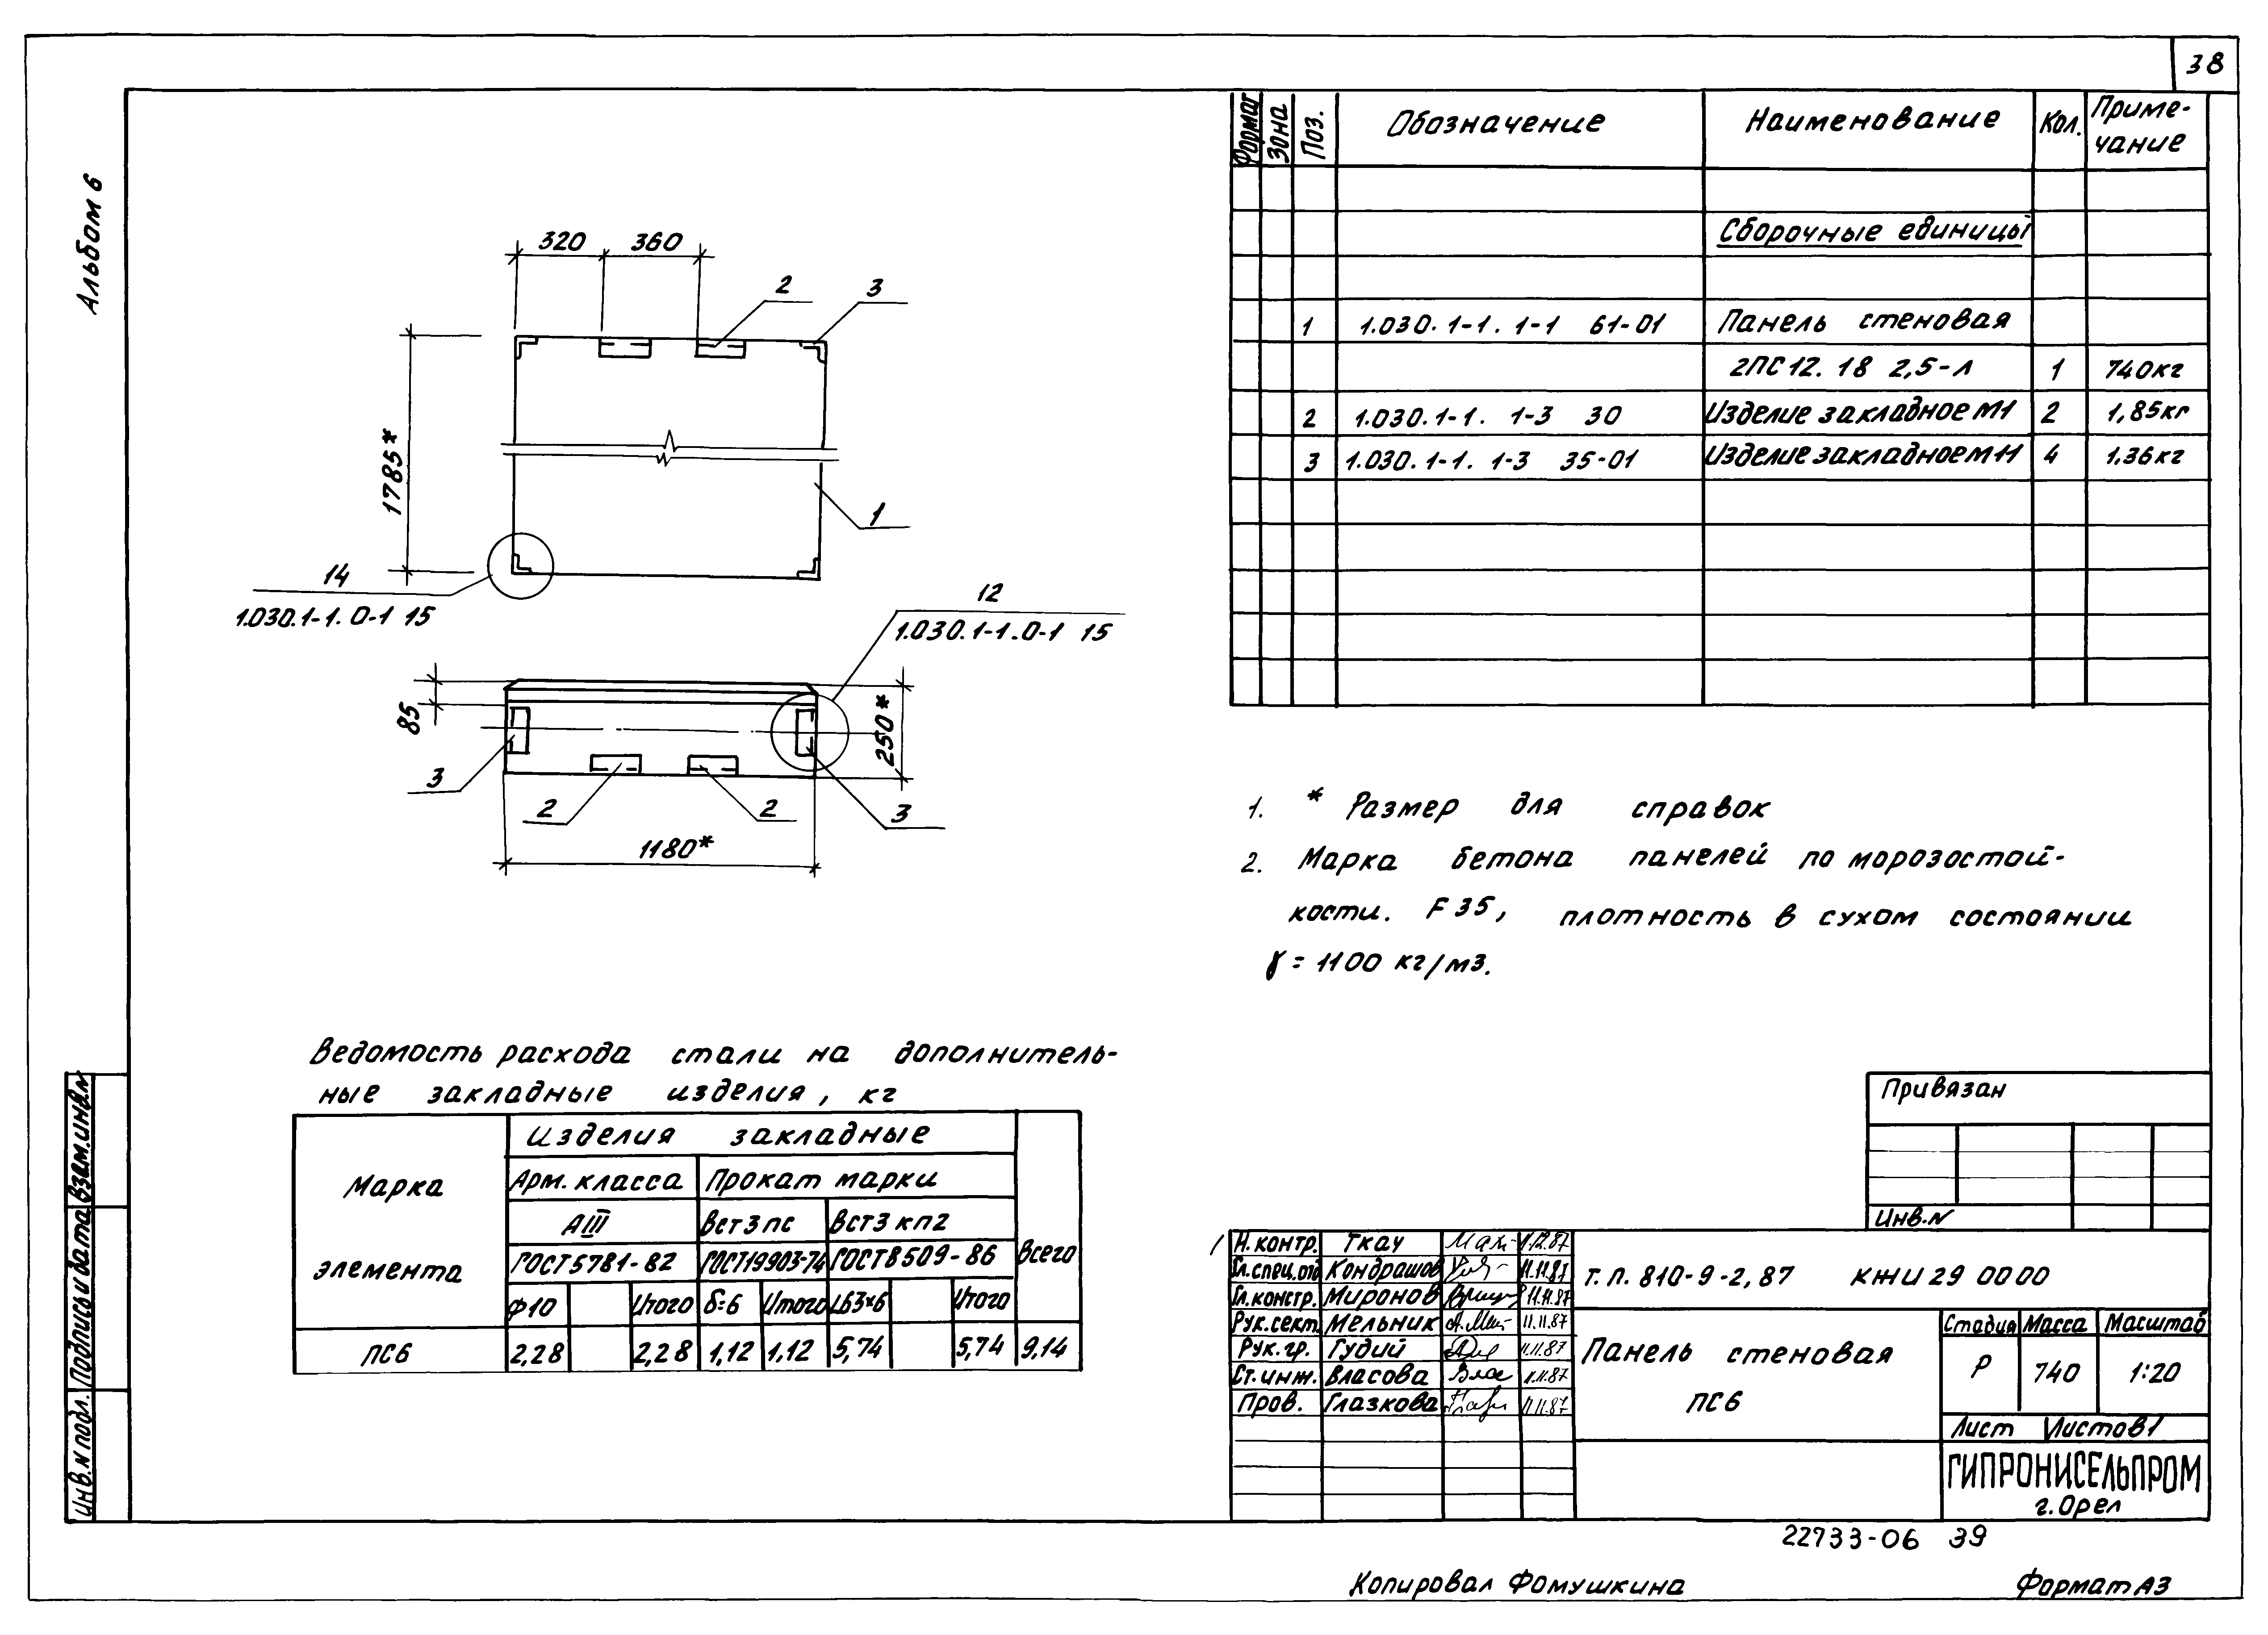 38
Альбом 6
Формат Зона Поз. Обозначение Наименование Кол. Приме-
чание
Сборочные единицы
1 1.030.1-1. 1-1 61-01 Панель стеновая
2ПС12. 18 2,5-Л 1 740кг
2 1.030.1-1. 1-3 30 Изделие закладное М1 2 1,85кг
3 1.030.1-1. 1-3 35-01 Изделие закладное М11 4 1,36кг
320 360
2 3
1785*
1
14
1.030.1-1. 0-1 15
12
1.030.1-1.0-1 15
85
250*
3 2 2 3
1180*
1. * Размер для справок
2. Марка бетона панелей по морозостой-
кости. F 35, плотность в сухом состоянии
γ = 1100 кг/м3.
Ведомость расхода стали на дополнитель-
ные закладные изделия, кг
Марка
элемента
Изделия закладные
Арм. класса Прокат марки
АIII Вст3пс Вст3кп2
ГОСТ5781-82 ГОСТ19903-74 ГОСТ8509-86 Всего
ф10 Итого δ=6 Итого L63×6 Итого
ПС6 2,28 2,28 1,12 1,12 5,74 5,74 9,14
Привязан
Инв.N
Н.контр. Ткач 1.12.87
Гл.спец.отд Кондрашов 11.11.87
Гл.констр. Миронов 11.11.87
Рук.сект. Мельник 11.11.87
Рук.гр. Гудий 11.11.87
Ст.инж. Власова 11.11.87
Пров. Глазкова 11.11.87
т.п. 810-9-2,87 КЖИ 29 00 00
Панель стеновая
ПС6
Стадия Масса Масштаб
Р 740 1:20
Лист Листов1
ГИПРОНИСЕЛЬПРОМ
г.Орел
Взам.инв.N
Подпись и дата
Инв.N подл.
22733-06 39
Копировал Фомушкина Формат А3